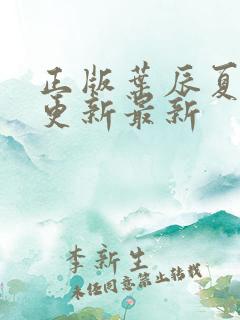 正版叶辰夏
更新最新
李新生
未经同意禁止转载